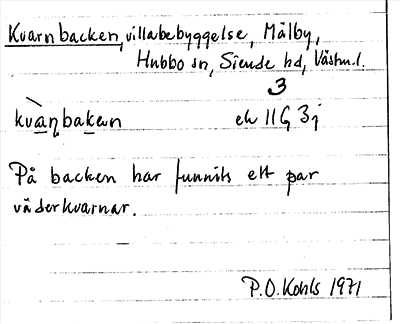 Kvarnbacken, villabebyggelse, Målby,
Hubbo sn, Siende hd, Västm.l.
3
kvànbakan ek 11G 3j
På backen har funnits ett par
väderkvarnar.
P.O. Kohls 1971